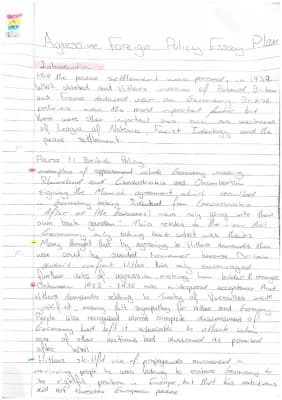 Agressive Foreign Policy Essay Plan
Introduction:
the peace settlement were pursued, in 1939
WW2 started and Hitlers invasion of Poland, Britain
and France declared war on Germany. British
policies was the most important factor but
there were other important such as weakness
of League of Nations, Fascist Ideology and the
peace settlement.
Para 1: British Policy
examples of appeasement include Germany invading
Rhineland and Czechoslovakia and Chamberlain
signing the Munich agreement which resulted
Germany taking Sudetenland from Czechoslovakia
After all the Germans were only going into their
own back garden. This relates to the view that
Germany only taking back what was theirs
Many thought that by agreeing to Hitlers demands then
war could be avoided however because Britain
didn't confront Hitler this only encouraged
further acts of aggression making him
Between 1933 - 1938 was widespread acceptance that
Hitlers demands relating to Treaty of Versailles were
justified, many felt sympathy for Hitler and Germany.
People also recognised that complete disarmament of
Germany had left it vulnerable to attack when
none of other nations had disarmed as promised
after WW1
Hitlers skillful use of propaganda succeeded in
convincing people he was looking to restore Germany to
its rightful position in Europe, but that his ambitions
did not threaten European peace